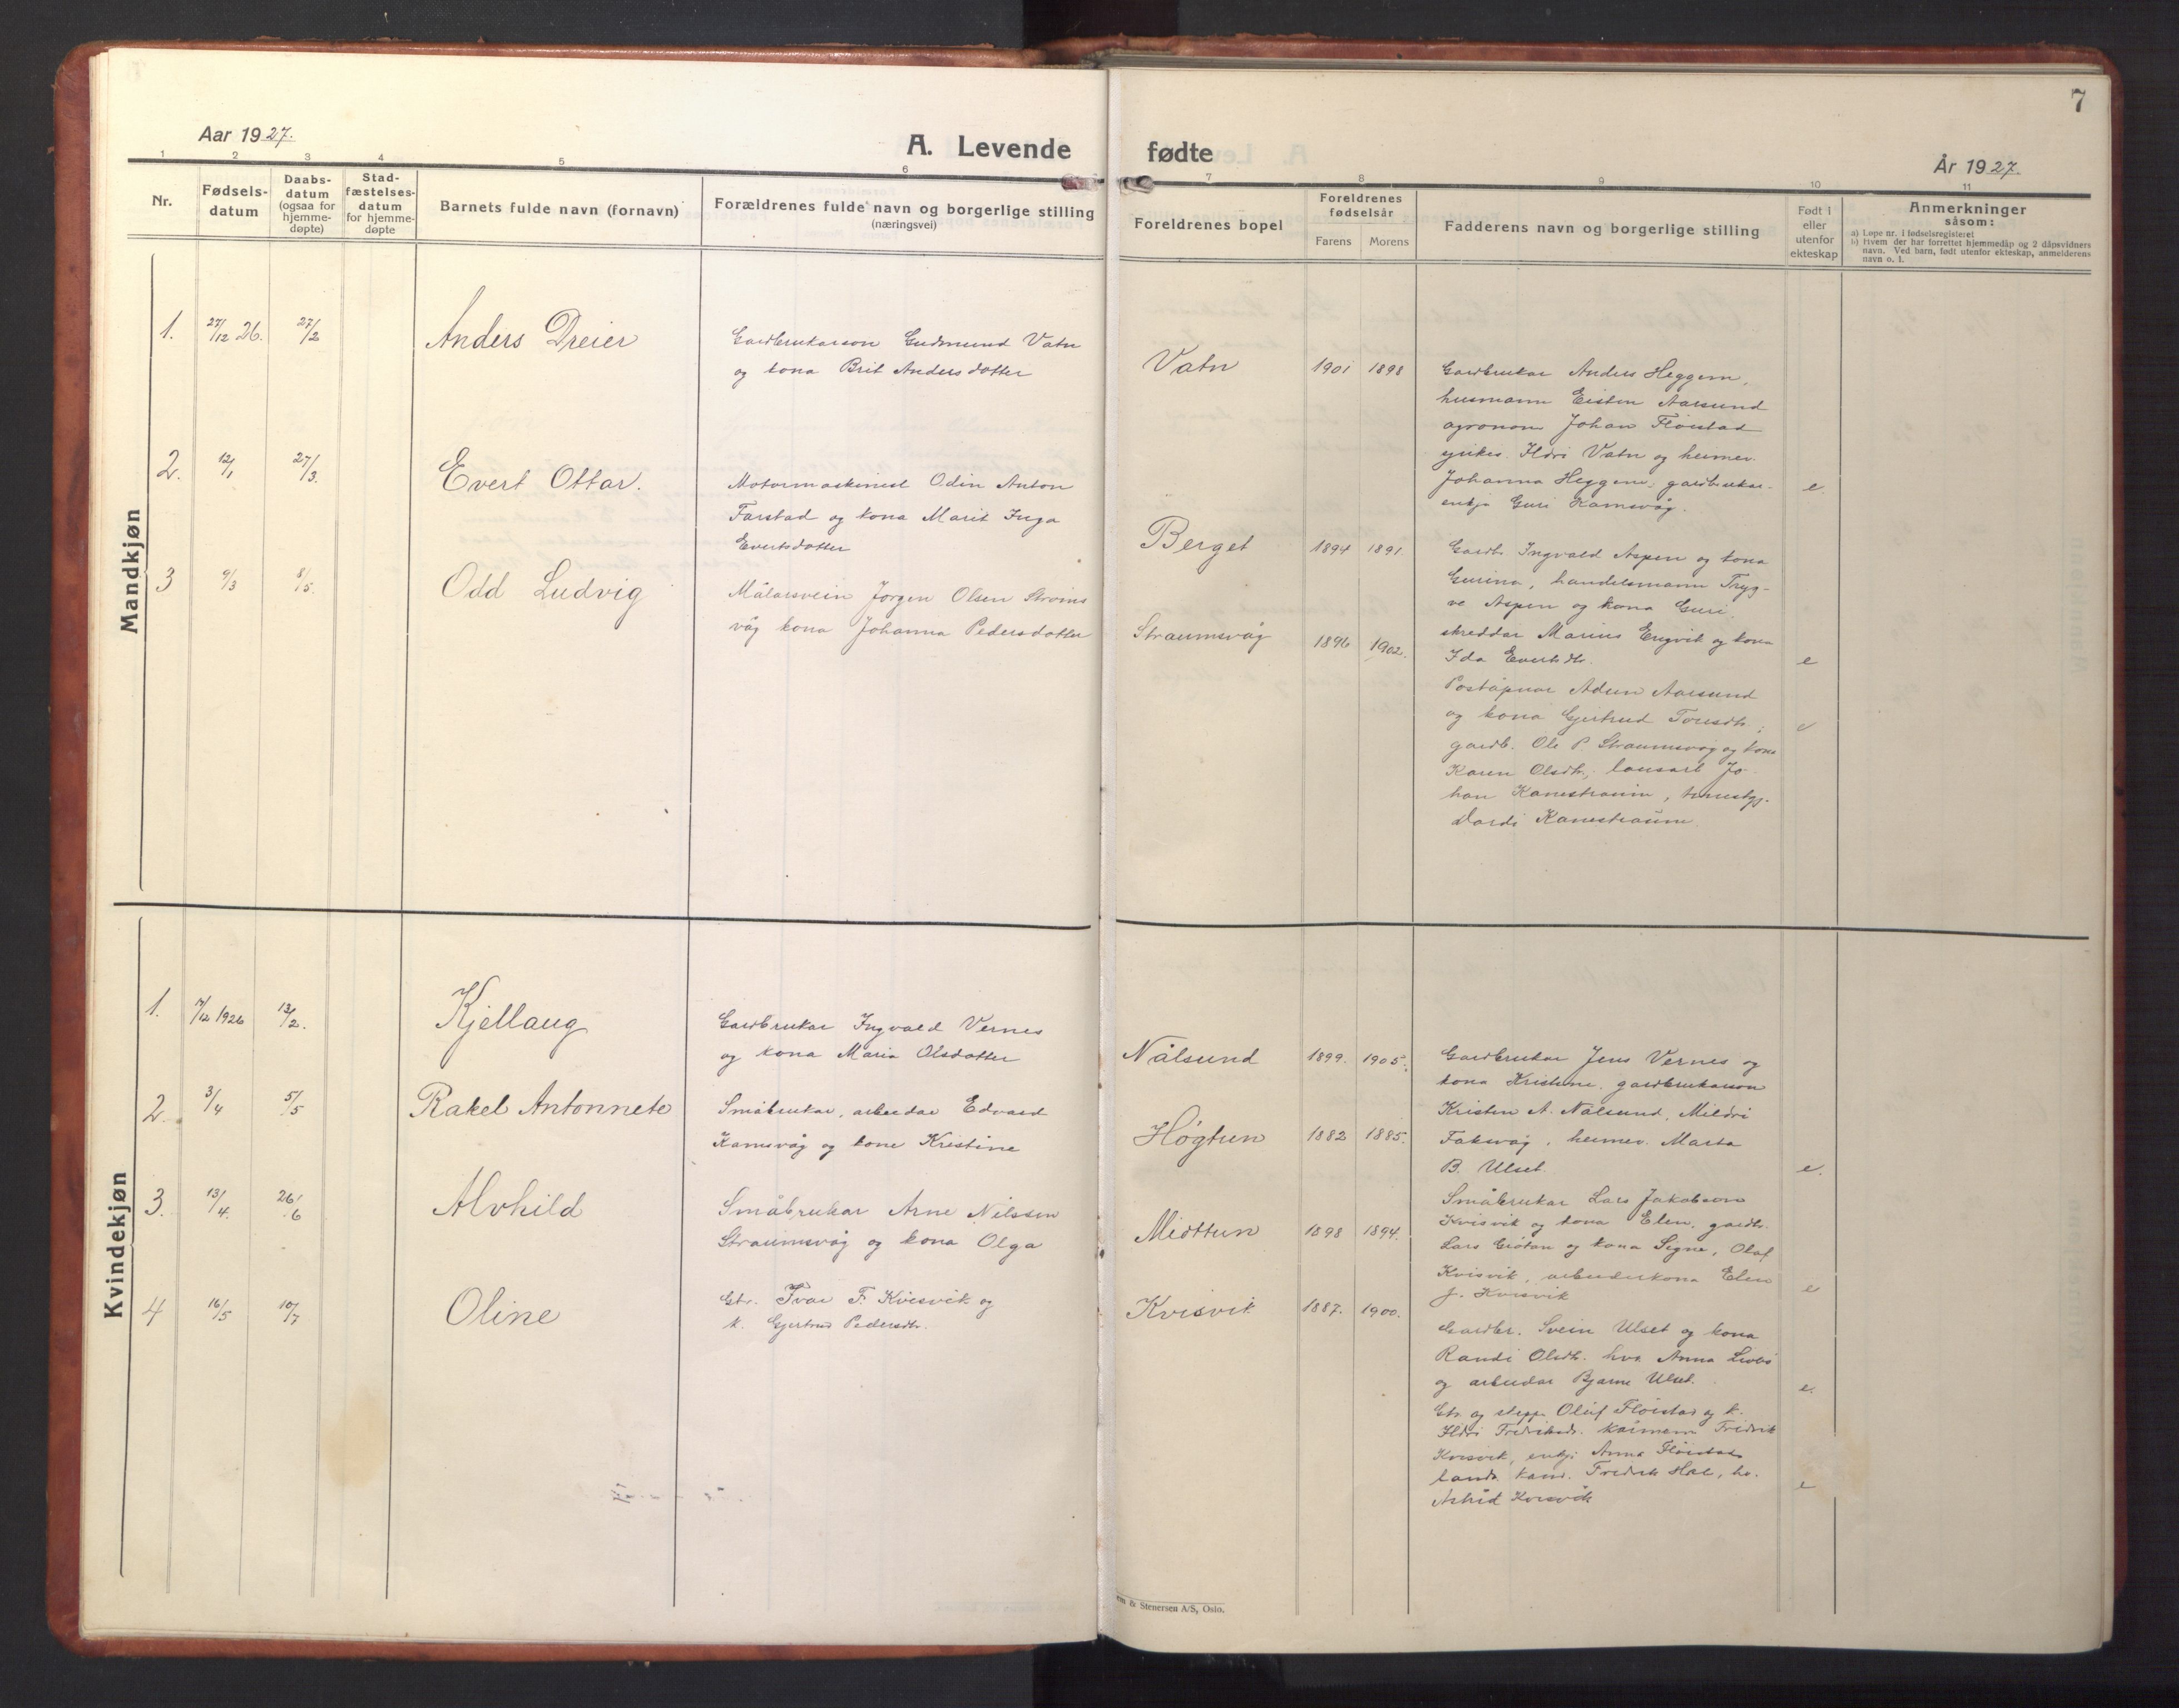 Aar 1927.
A. Levende
1 2 3 4 5 6
Nr.
Fødsels-
datum
Daabs-
datum
(ogsaa for
hjemme-
døpte)
Stad-
fæstelses-
datum
for hjemme-
døpte
Barnets fulde navn (fornavn)
Forældrenes fulde navn og borgerlige stilling
(næringsvei)
Mandkjøn
1. 27/12 26. 27/2 Anders Dreier
Gardbrukarson Gudmund Vatn
og kona Brit Andersdotter
2. 12/1 27/3. Evert Ottar.
Motormaskinist Odin Anton
Farstad og kona Marit Inga
Evertsdotter
3 9/3 8/5. Odd Ludvig
Målarsvein Jørgen Olsen Straums
våg kona Johanna Pedersdotter
Kvindekjøn
1. 17/12 1926 13/2. Kjellaug
Gardbrukar Ingvald Vernes
og kona Maria Olsdotter
2. 3/4 5/5 Rakel Antonnete
Småbrukar, arbeidar Edvard
Kamsvåg og kone Kristine
3. 13/4. 26/6 Alvhild
Småbrukar Arne Nilssen
Straumsvåg og kona Olga
4 16/5 10/7 Oline
Gbr. Ivar F. Kvisvik og
k. Gjertrud Pedersdtr.
7
fødte
År 1927.
7 8 9 10 11
Foreldrenes bopel
Foreldrenes
fødselsår
Farens Morens
Fadderens navn og borgerlige stilling
Født i
eller
utenfor
ekteskap
Anmerkninger
såsom:
a) Løpe nr. i fødselsregisteret
b) Hvem der har forrettet hjemmedåp og 2 dåpsvidners
navn. Ved barn, født utenfor ekteskap, anmelderens
navn o. l.
Vatn 1901 1898
Gardbrukar Anders Heggem,
husmann Eisten Aarsund
agronom Johan Fløistad
Ildri Vatn og heimev.
Johanna Heggem, gardbrukar-
enkja Guri Kamsvåg. e.
Berget 1894 1891.
Gardb. Ingvald Aspen og kona
Gurina, handelsmann Tryg-
ve Aspen og kona Guri,
skreddar Marius Engvik og kona
Ida Evertsdtr. e
Straumsvåg 1896 1902.
Poståpnar Adun Aarsund
og kona Gjertrud Toresdtr.; e
gardb. Ole P. Straumsvåg og kona
Karen Olsdtr.; lausarb. Jo-
han Kanestraum,
Dordi Kanestraum.
Nålsund 1899. 1905.
Gardbrukar Jens Vernes og
kona Kristine, gardbrukarson
Kristen A. Nålsund, Mildri
Foksvåg, heimev. Marta
B. Ulset. e.
Høgtun 1882 1885.
Småbrukar Lars Jakobson
Kvisvik og kona Elen, gardbr.
Lars Grötan og kona Signe, Olaf
Kvisvik, arbeiderkona Elen
J. Kvisvik e
Midttun 1898 1894.
Gardbr. Svein Ulset og kona
Randi Olsdtr. Anna
og arbeidar Bjarne Ulset. e.
Kvisvik 1887. 1900.
Gbr. og Oluf Fløistad og k.
Ildri Fredriksdr. Fridrik
Kvisvik, enkj. Anna Fløistad
Fredrik Hol,
Astrid Kvisvik e
& Stenersen A/S, Oslo.